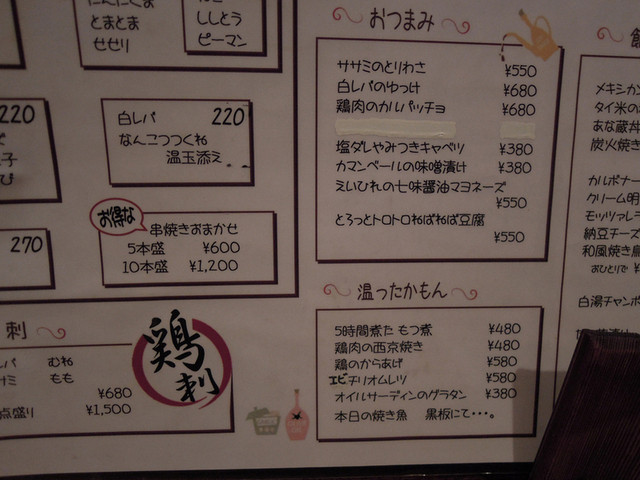 とまとま
せせり
ししとう
ピーマン
220
白レバ 220
なんこつつくね
温玉添え
270
お得な
串焼きおまかせ
5本盛 ¥600
10本盛 ¥1,200
刺
むね
もも
¥680
点盛り ¥1,500
鶏刺
おつまみ
ササミのとりわさ ¥550
白レバのゆっけ ¥680
鶏肉のカルパッチョ ¥680
塩ダレやみつきキャベツ ¥380
カマンベールの味噌漬け ¥380
えいひれの七味醤油マヨネーズ
¥550
とろっとトロトロねばねば豆腐
¥550
温ったかもん
5時間煮た もつ煮 ¥480
鶏肉の西京焼き ¥480
鶏のからあげ ¥580
エビチリオムレツ ¥580
オイルサーディンのグラタン ¥380
本日の焼き魚 黒板にて・・・。
メキシカン
タイ米の
あな蔵丼
炭火焼き
カルボナー
クリーム明
モッツァレラ
納豆チーズ
和風焼き鳥
おひとりで ¥
白湯チャンポ